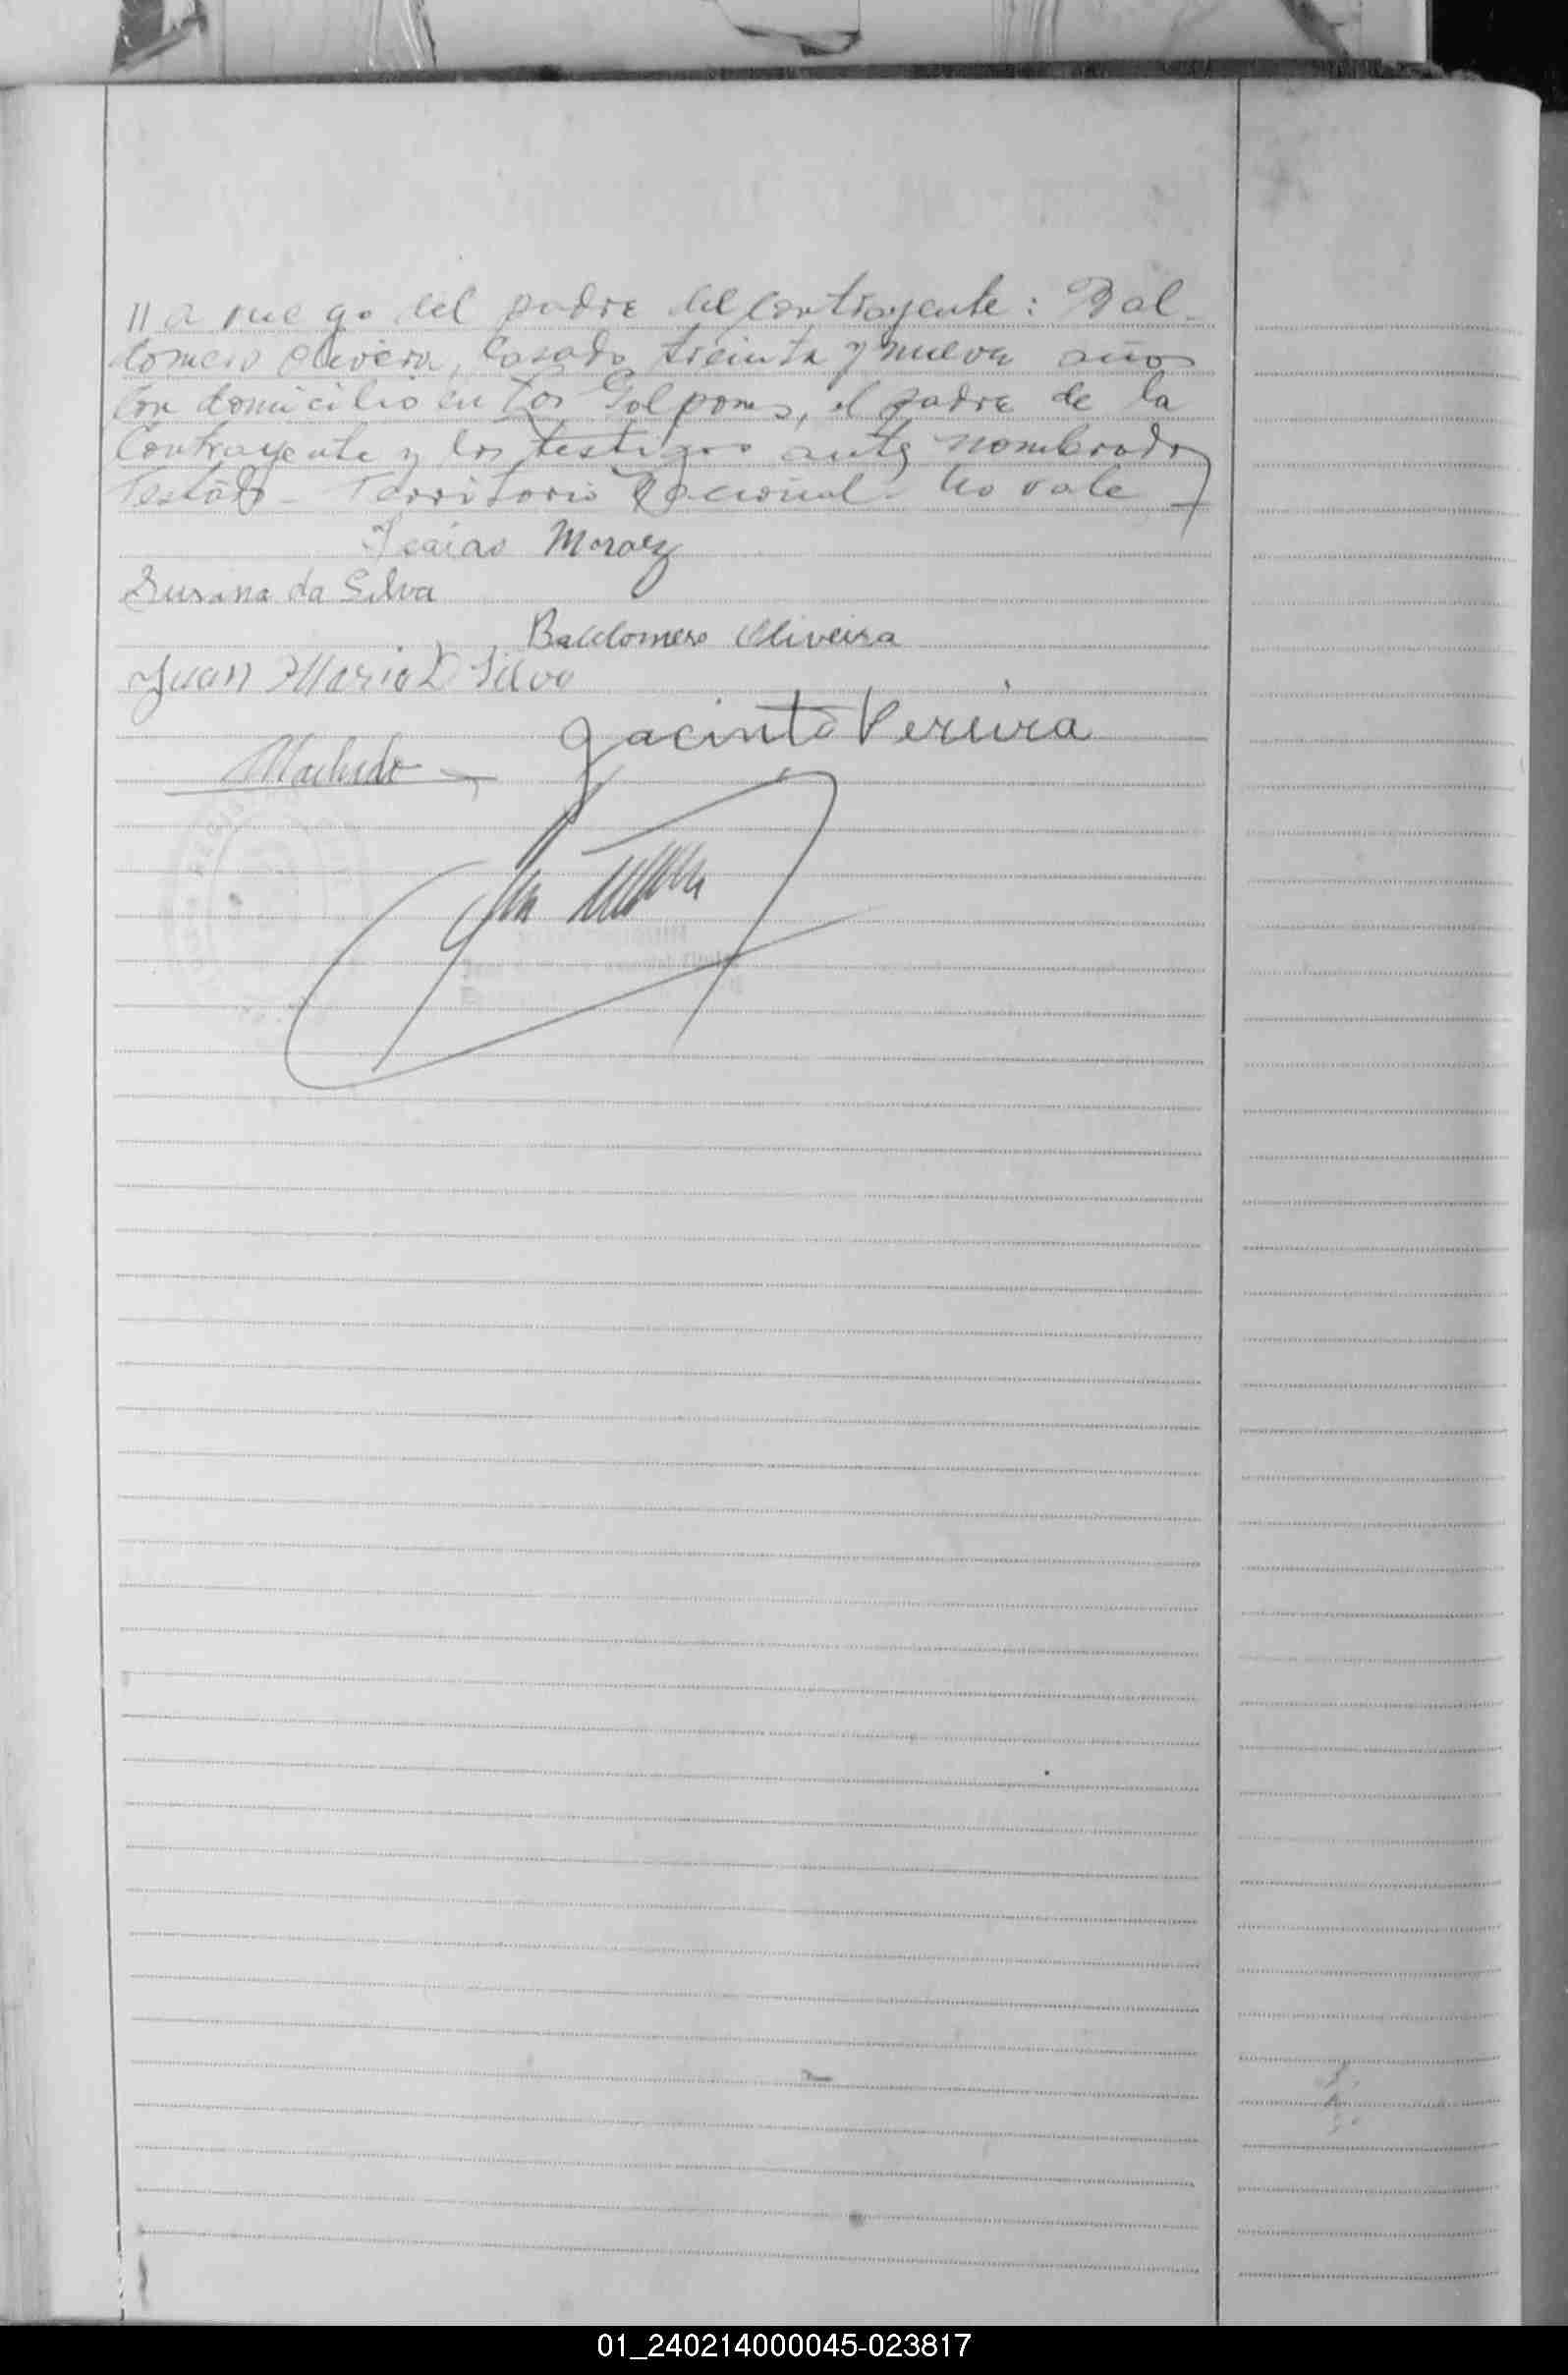 // a ruego del padre del contrayente: Bal-
domero Olivera, casado treinta y nueve años
con domicilio en Los Galpones, el padre de la
Contrayente y los testigos antes nombrados
Testado - Territorio Nacional - No vale
Isaias Moraez
Susana da Silva
Baldomero Oliveira
Juan Maria D Silva
Jacinto Pereira
Machado
01_240214000045-023817